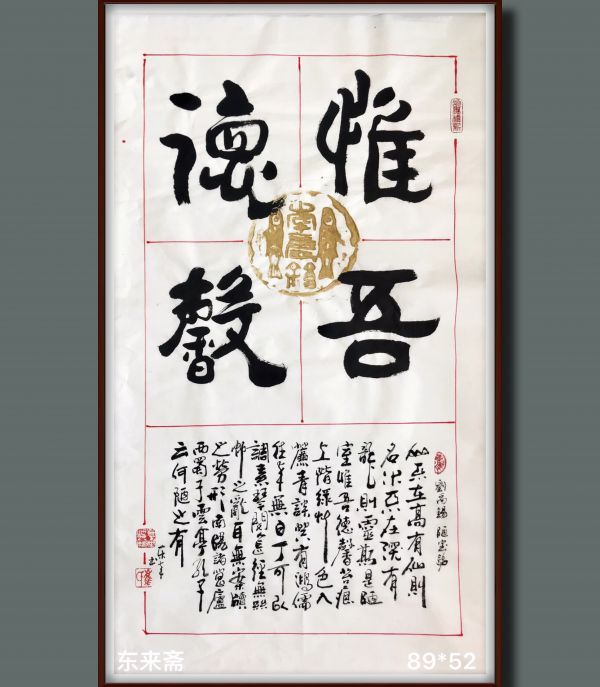 惟吾
德馨
劉禹錫 陋室銘
山不在高有仙則
名水不在深有
龍則靈斯是陋
室惟吾德馨苔痕
上階綠艸色入
簾青談笑有鴻儒
往來無白丁可以
調素琴閱金經無絲
竹之亂耳無案牘
之勞形南陽諸葛廬
西蜀子雲亭孔子
云何陋之有
东来斋
89*52